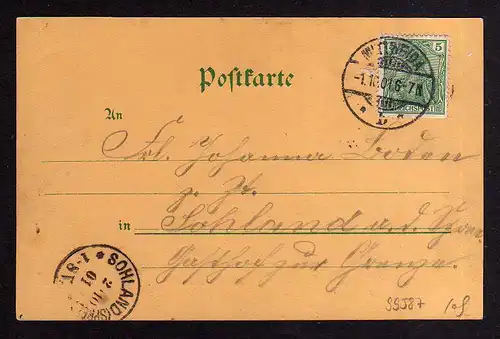 Postkarte
MITTWEIDA
5
-1.10.01. 6-7N.
* b *
An
Frl. Johanna Boden
z. Zt.
in Sohland a. d. Spree
Gasthof zur Grenze.
* SOHLAND (SPREE)
2 10 01
1-8V
99587